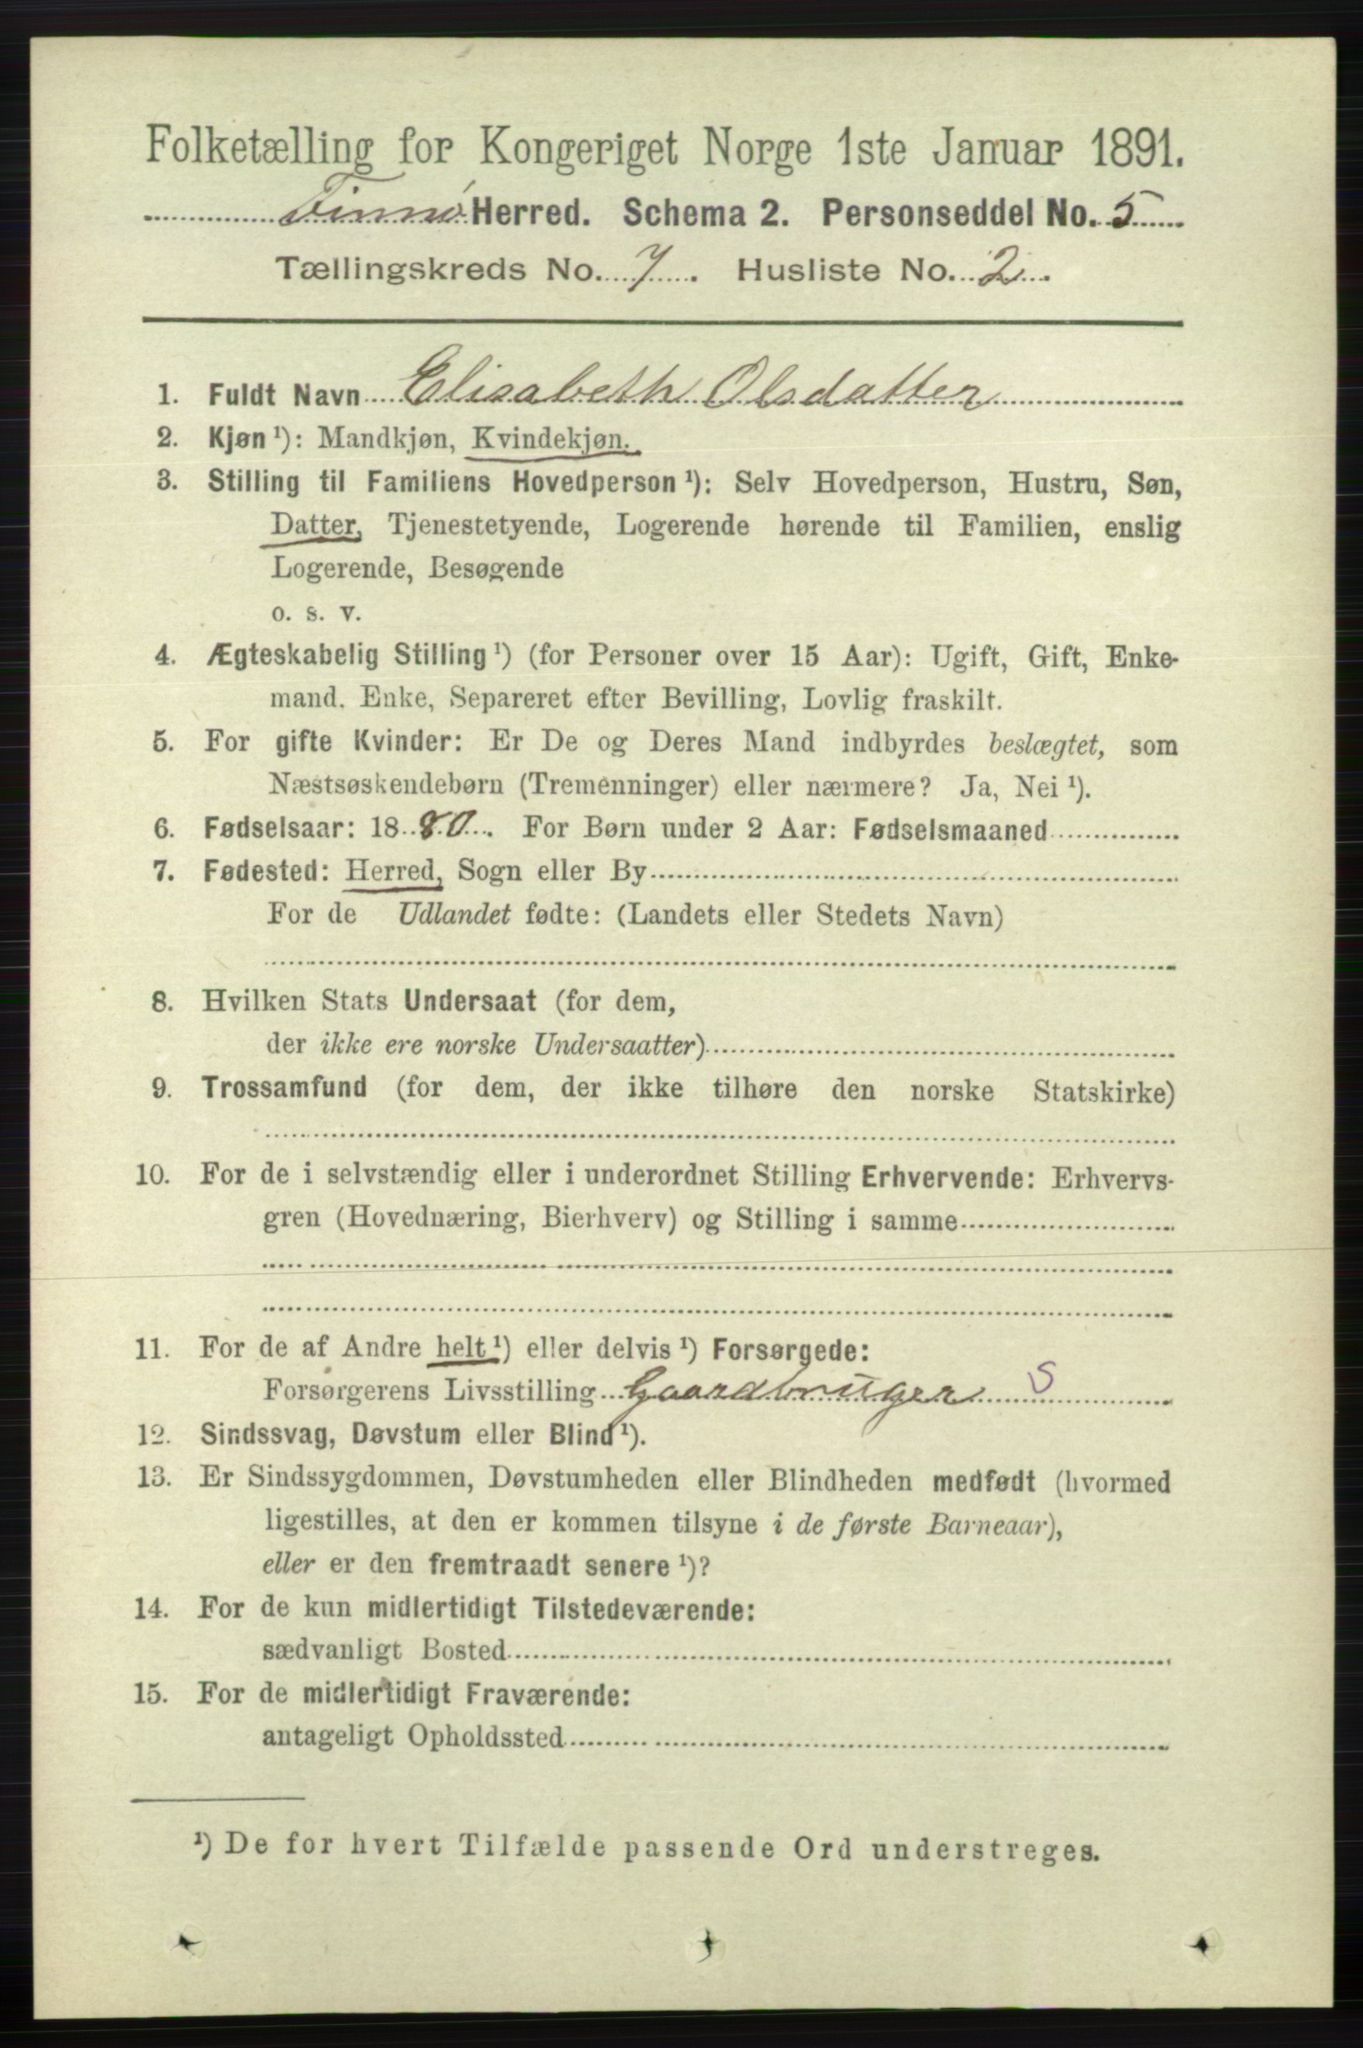 Folketælling for Kongeriget Norge 1ste Januar 1891.
Finnø Herred. Schema 2. Personseddel No. 5
Tællingskreds No. 7. Husliste No. 2.
1. Fuldt Navn Elisabeth Olsdatter
2. Kjøn ¹): Mandkjøn, Kvindekjøn.
3. Stilling til Familiens Hovedperson ¹): Selv Hovedperson, Hustru, Søn,
Datter, Tjenestetyende, Logerende hørende til Familien, enslig
Logerende, Besøgende
o. s. v.
4. Ægteskabelig Stilling ¹) (for Personer over 15 Aar): Ugift, Gift, Enke-
mand, Enke, Separeret efter Bevilling, Lovlig fraskilt.
5. For gifte Kvinder: Er De og Deres Mand indbyrdes beslægtet, som
Næstsøskendebørn (Tremenninger) eller nærmere? Ja, Nei ¹).
6. Fødselsaar: 1880. For Børn under 2 Aar: Fødselsmaaned
7. Fødested: Herred, Sogn eller By
For de Udlandet fødte: (Landets eller Stedets Navn)
8. Hvilken Stats Undersaat (for dem,
der ikke ere norske Undersaatter)
9. Trossamfund (for dem, der ikke tilhøre den norske Statskirke)
10. For de i selvstændig eller i underordnet Stilling Erhvervende: Erhvervs-
gren (Hovednæring, Bierhverv) og Stilling i samme
11. For de af Andre helt ¹) eller delvis ¹) Forsørgede:
Forsørgerens Livsstilling Gaardbruger S
12. Sindssvag, Døvstum eller Blind ¹).
13. Er Sindssygdommen, Døvstumheden eller Blindheden medfødt (hvormed
ligestilles, at den er kommen tilsyne i de første Barneaar),
eller er den fremtraadt senere ¹)?
14. For de kun midlertidigt Tilstedeværende:
sædvanligt Bosted
15. For de midlertidigt Fraværende:
antageligt Opholdssted
¹) De for hvert Tilfælde passende Ord understreges.